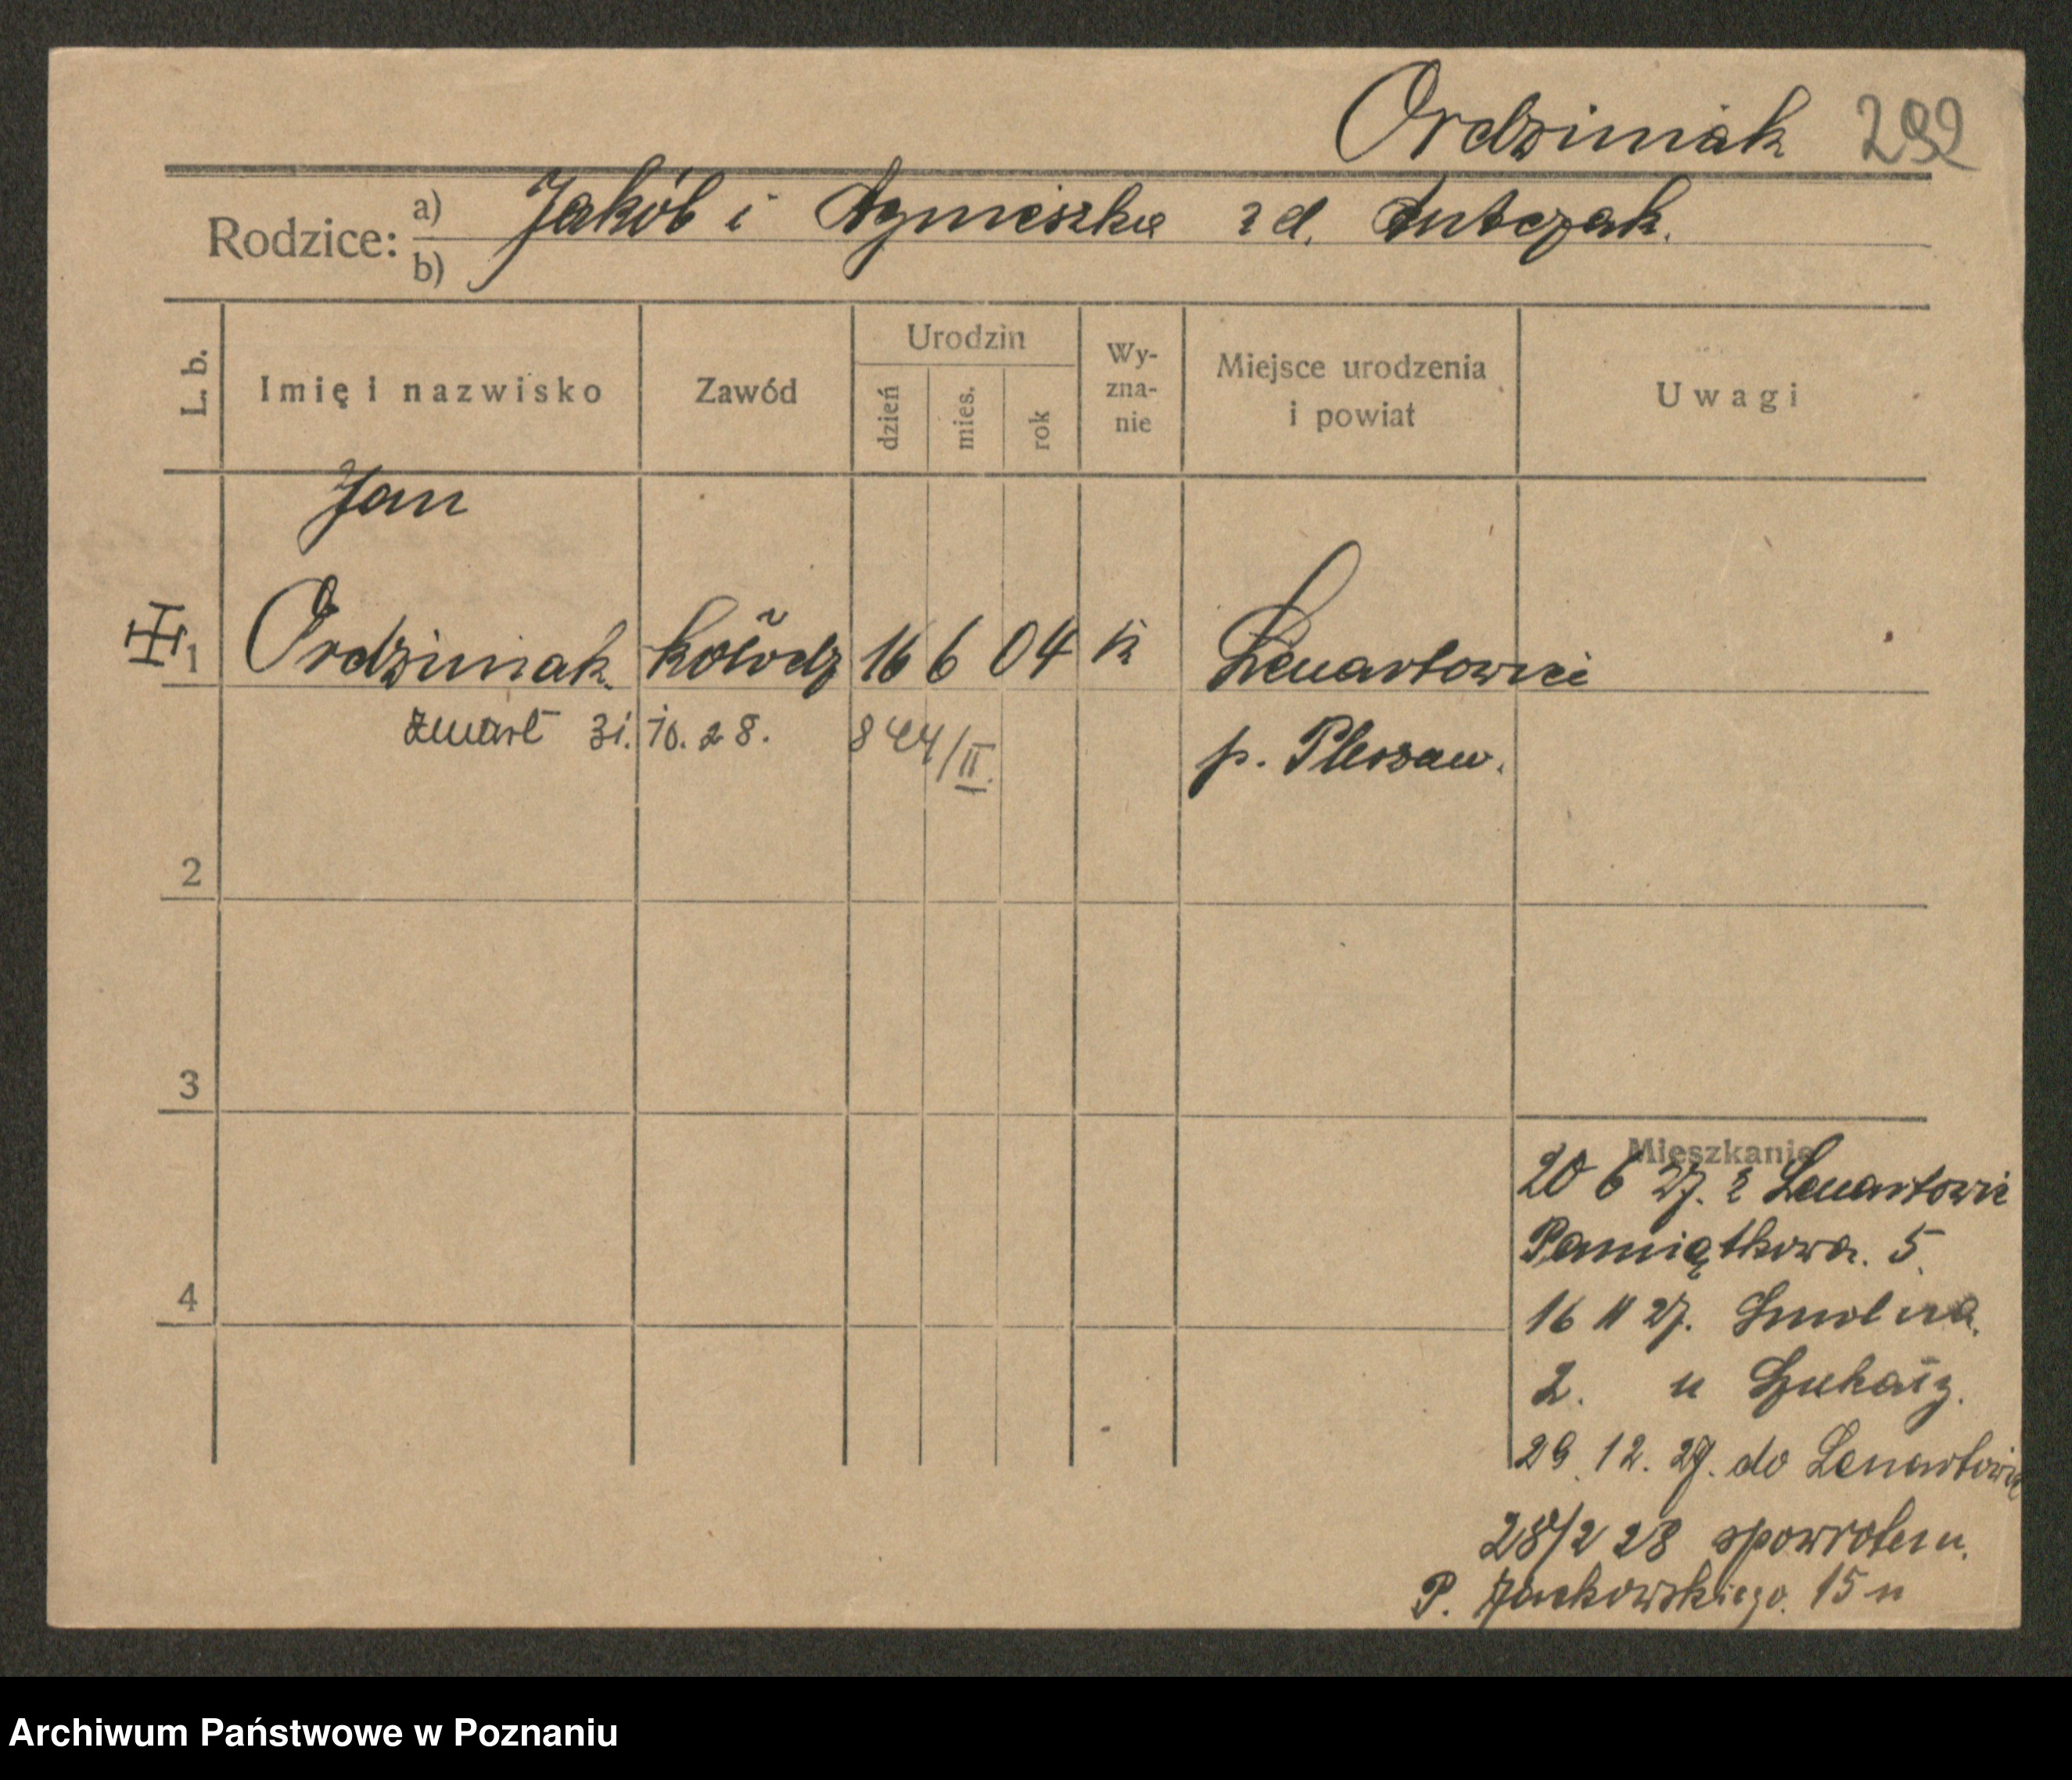 Ordziniak 292
Rodzice: a) Jakób i Agnieszka z d. Antczak.
b)
L. b. Imię i nazwisko Zawód Urodzin dzień mies. rok Wy-zna-nie Miejsce urodzenia i powiat Uwagi
Jan
1 Ordziniak kołodz 16 6 04 k Lenartowice
zmarł 31. 10. 28. 844/II. p. Pleszew.
2
3
Mieszkanie
20 6 27. z Lenartowic
Pamiątkowa. 5.
4
16 11 27. Smolna.
2. u
29. 12. 27. do Lenartowic
28/2 28 spowrotem.
P. 15 u
Archiwum Państwowe w Poznaniu